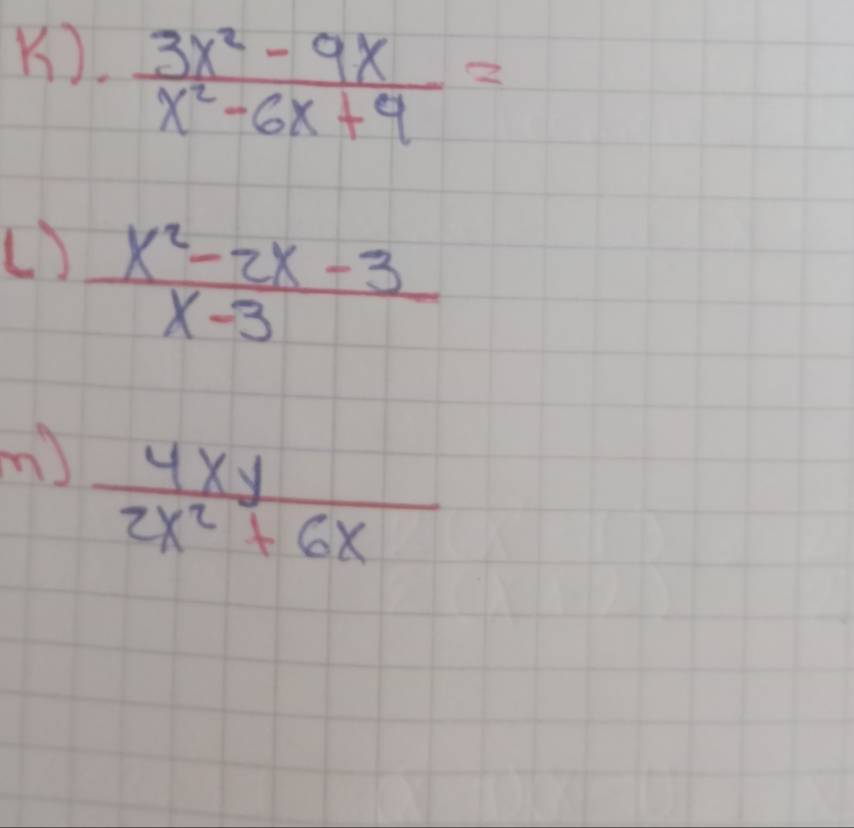 K). 3x² - 9x =
x² - 6x + 9
L) x² - 2x - 3
x - 3
m) 4xy
2x² + 6x